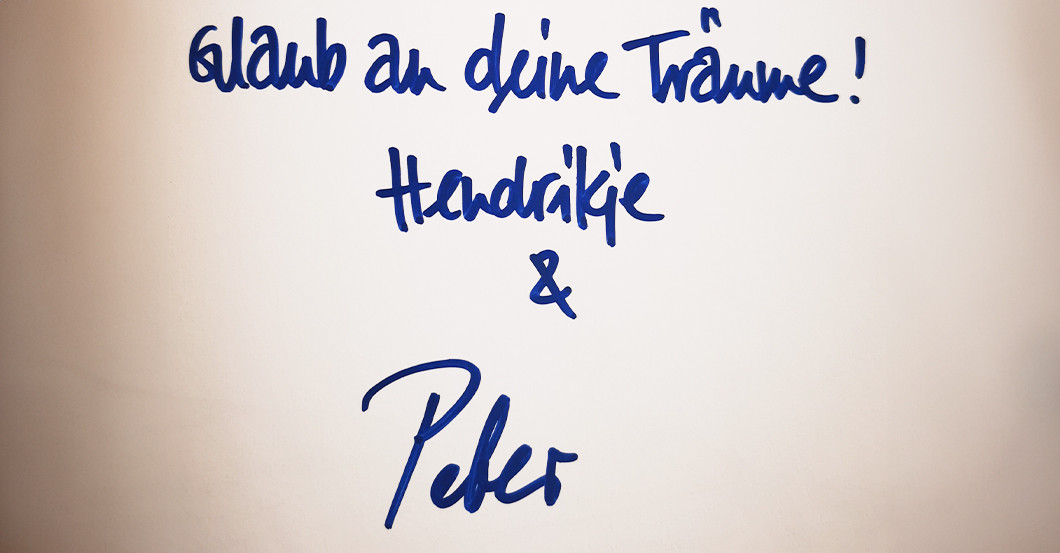 Glaub an deine Träume!
Hendrikje
&
Peter